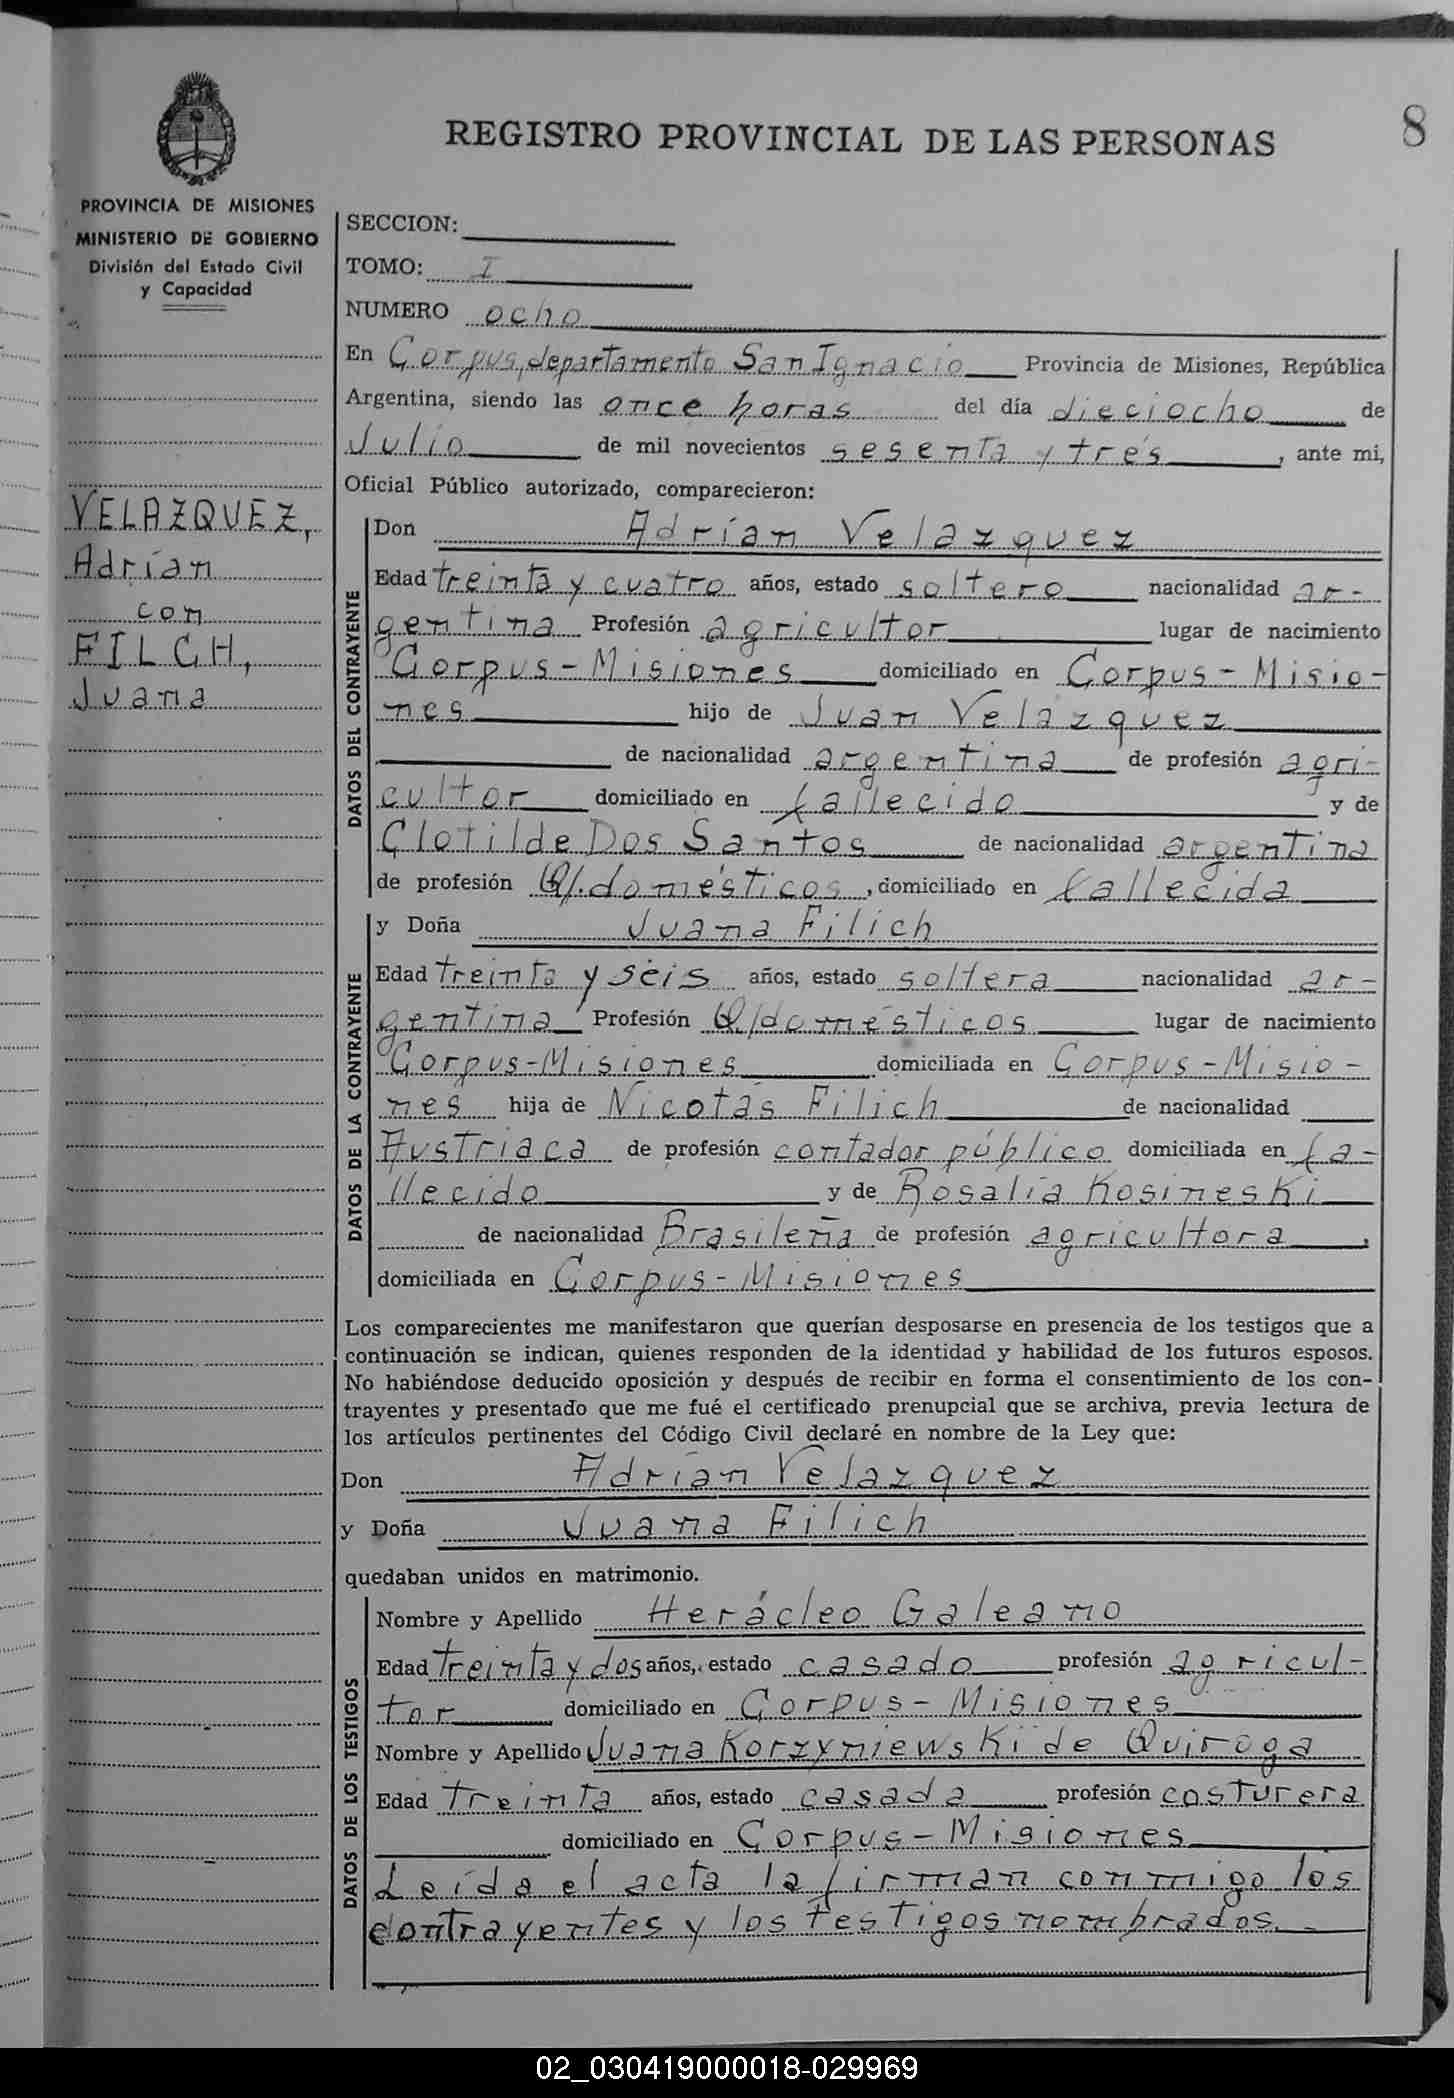 REGISTRO PROVINCIAL DE LAS PERSONAS
8
PROVINCIA DE MISIONES
MINISTERIO DE GOBIERNO
División del Estado Civil
y Capacidad
VELAZQUEZ,
Adrían
con
FILCH,
Juana
SECCION:
TOMO: I
NUMERO ocho
En Corpus, departamento San Ignacio Provincia de Misiones, República
Argentina, siendo las once horas del día dieciocho de
Julio de mil novecientos sesenta y trés, ante mi,
Oficial Público autorizado, comparecieron:
DATOS DEL CONTRAYENTE
Don Adrían Velazquez
Edad treinta y cuatro años, estado soltero nacionalidad ar-
gentina Profesión agricultor lugar de nacimiento
Corpus-Misiones domiciliado en Corpus-Misio-
nes hijo de Juan Velazquez
de nacionalidad argentina de profesión agri-
cultor domiciliado en fallecido y de
Clotilde Dos Santos de nacionalidad argentina
de profesión Q/.domésticos, domiciliado en fallecida
DATOS DE LA CONTRAYENTE
y Doña Juana Filich
Edad treinta y séis años, estado soltera nacionalidad ar-
gentina Profesión Q/domésticos lugar de nacimiento
Corpus-Misiones domiciliada en Corpus-Misio-
nes hija de Nicotás Filich de nacionalidad
Austriaca de profesión contador público domiciliada en fa-
llecido y de Rosalía Kosineski
de nacionalidad Brasileña de profesión agricultora,
domiciliada en Corpus-Misiones
Los comparecientes me manifestaron que querían desposarse en presencia de los testigos que a
continuación se indican, quienes responden de la identidad y habilidad de los futuros esposos.
No habiéndose deducido oposición y después de recibir en forma el consentimiento de los con-
trayentes y presentado que me fué el certificado prenupcial que se archiva, previa lectura de
los artículos pertinentes del Código Civil declaré en nombre de la Ley que:
Don Adrían Velazquez
y Doña Juana Filich
quedaban unidos en matrimonio.
DATOS DE LOS TESTIGOS
Nombre y Apellido Herácleo Galeano
Edad treinta y dos años, estado casado profesión agricul-
tor domiciliado en Corpus-Misiones
Nombre y Apellido Juana Korzyniewski de Quiroga
Edad treinta años, estado casada profesión costurera
domiciliado en Corpus-Misiones
Leída el acta la firman conmigo los
contrayentes y los testigos nombrados.-
02_030419000018-029969